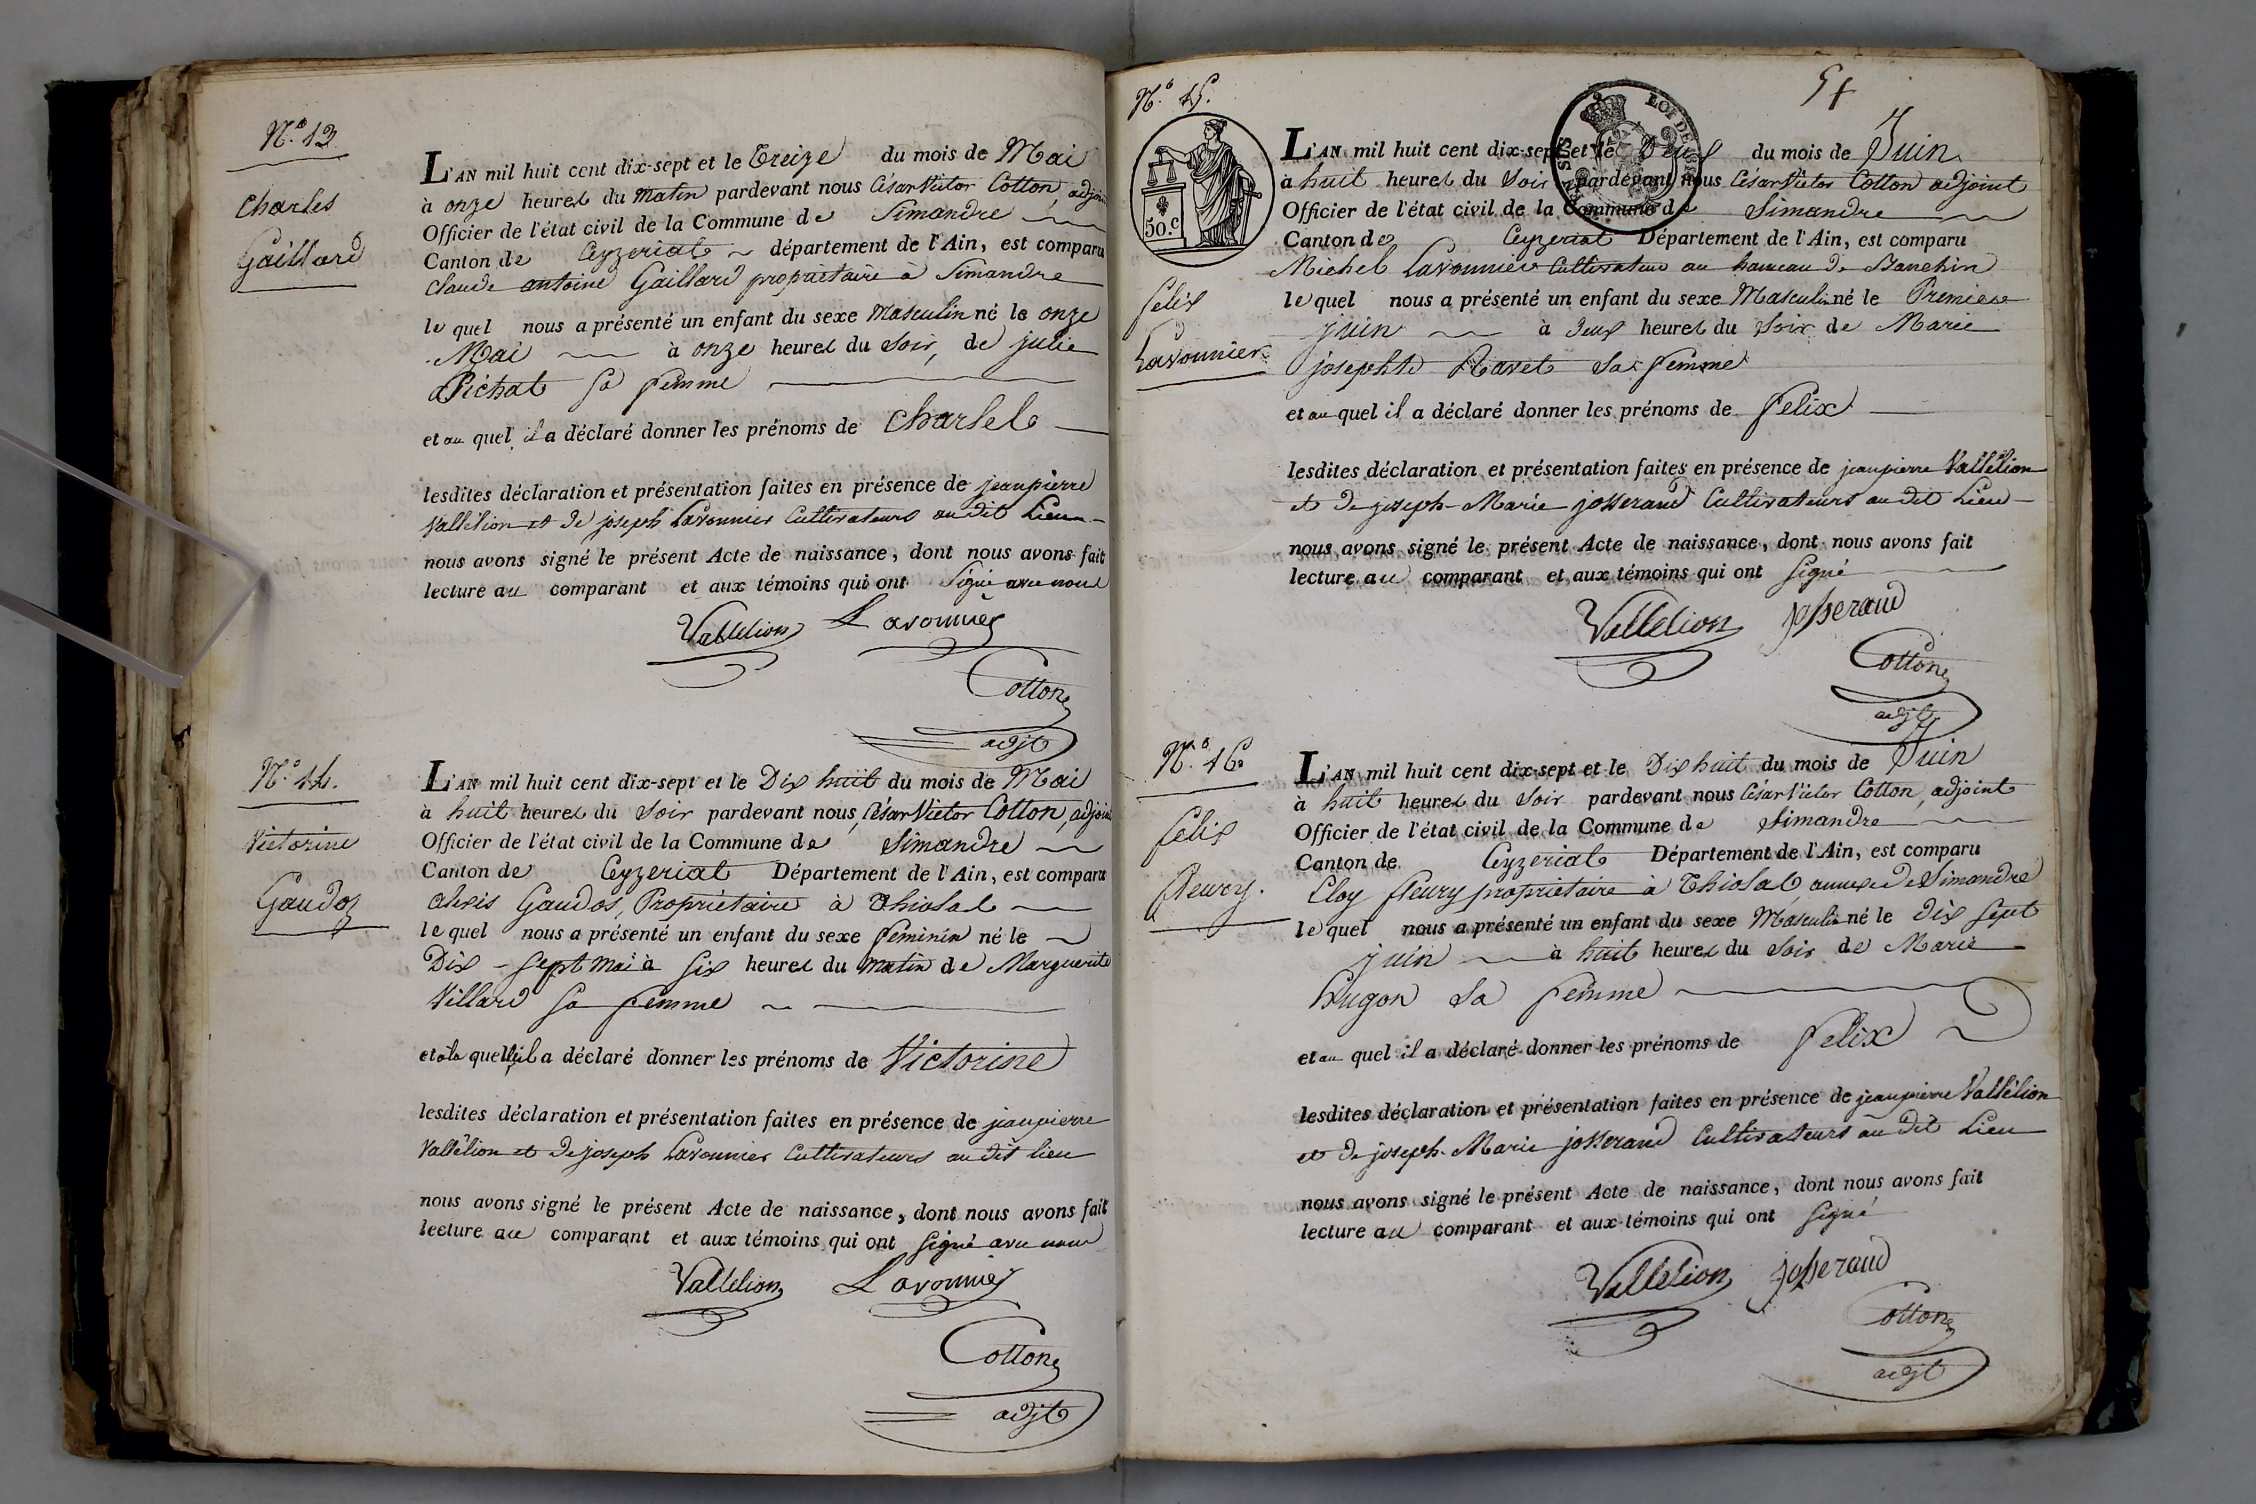 N.o 13
Charles
Gaillard
L'AN mil huit cent dix-sept et le Treize du mois de Mai
à onze heures du matin pardevant nous César Victor Cotton, adjoint
Officier de l'état civil de la Commune de Simandre
Canton de Ceyzeriat département de l'Ain, est comparu
Claude antoine Gaillard propriétaire à Simandre
le quel nous a présenté un enfant du sexe Masculin né le onze
Mai à onze heures du Soir, de julie
Pichat sa femme
et au quel il a déclaré donner les prénoms de Charles
lesdites déclaration et présentation faites en présence de jeanpierre
Vallélion et de joseph Lavounier Cultivateurs au dit Lieu
nous avons signé le présent Acte de naissance, dont nous avons fait
lecture au comparant et aux témoins qui ont Signé avec nous
Vallelion Lavounier
Cotton
adjt
N.o 14.
Victorine
Gaudoz
L'AN mil huit cent dix-sept et le Dix huit du mois de Mai
à huit heures du Soir pardevant nous, César Victor Cotton, adjoint
Officier de l'état civil de la Commune de Simandre
Canton de Ceyzeriat Département de l'Ain, est comparu
alexis Gaudos, Propriétaire à Thiolal
le quel nous a présenté un enfant du sexe feminin né le
Dix-Sept Mai à Six heures du Matin de Marguerite
Villard sa femme
et à la quelle il a déclaré donner les prénoms de Victorine
lesdites déclaration et présentation faites en présence de jeanpierre
Vallélion et de joseph Lavounier Cultivateurs au dit lieu
nous avons signé le présent Acte de naissance, dont nous avons fait
lecture au comparant et aux témoins qui ont Signé avec nous
Vallelion Lavounier
Cotton
adjt
N.o 15.
50.c
Felix
Lavounier
L'AN mil huit cent dix-sept et le Deux du mois de Juin
à huit heures du Soir pardevant nous César Victor Cotton adjoint
Officier de l'état civil de la Commune de Simandre
Canton de Ceyzeriat Département de l'Ain, est comparu
Michel Lavounier Cultivateur au hameau de Banchin
le quel nous a présenté un enfant du sexe Masculin né le Premier
juin à deux heures du Soir de Marie
josephte Ravet Sa femme
et au quel il a déclaré donner les prénoms de Felix
lesdites déclaration et présentation faites en présence de jeanpierre Vallélion
et de joseph-Marie josserand Cultivateurs au dit Lieu
nous avons signé le présent Acte de naissance, dont nous avons fait
lecture au comparant et aux témoins qui ont Signé
Vallelion josserand
Cotton
adjt
N.o 16
Felix
fleury.
L'AN mil huit cent dix-sept et le Dix huit du mois de Juin
à huit heures du Soir pardevant nous César Victor Cotton, adjoint
Officier de l'état civil de la Commune de Simandre
Canton de Ceyzeriat Département de l'Ain, est comparu
Eloy fleury propriétaire à Thiolal, annexe de Simandre
le quel nous a présenté un enfant du sexe Masculin né le dix Sept
juin à huit heures du Soir de Marie
Hugon Sa femme
et au quel il a déclaré donner les prénoms de Felix
lesdites déclaration et présentation faites en présence de jeanpierre Vallélion
et de joseph-Marie josserand Cultivateurs au dit Lieu
nous avons signé le présent Acte de naissance, dont nous avons fait
lecture au comparant et aux témoins qui ont Signé
Vallelion josserand
Cotton
adjt